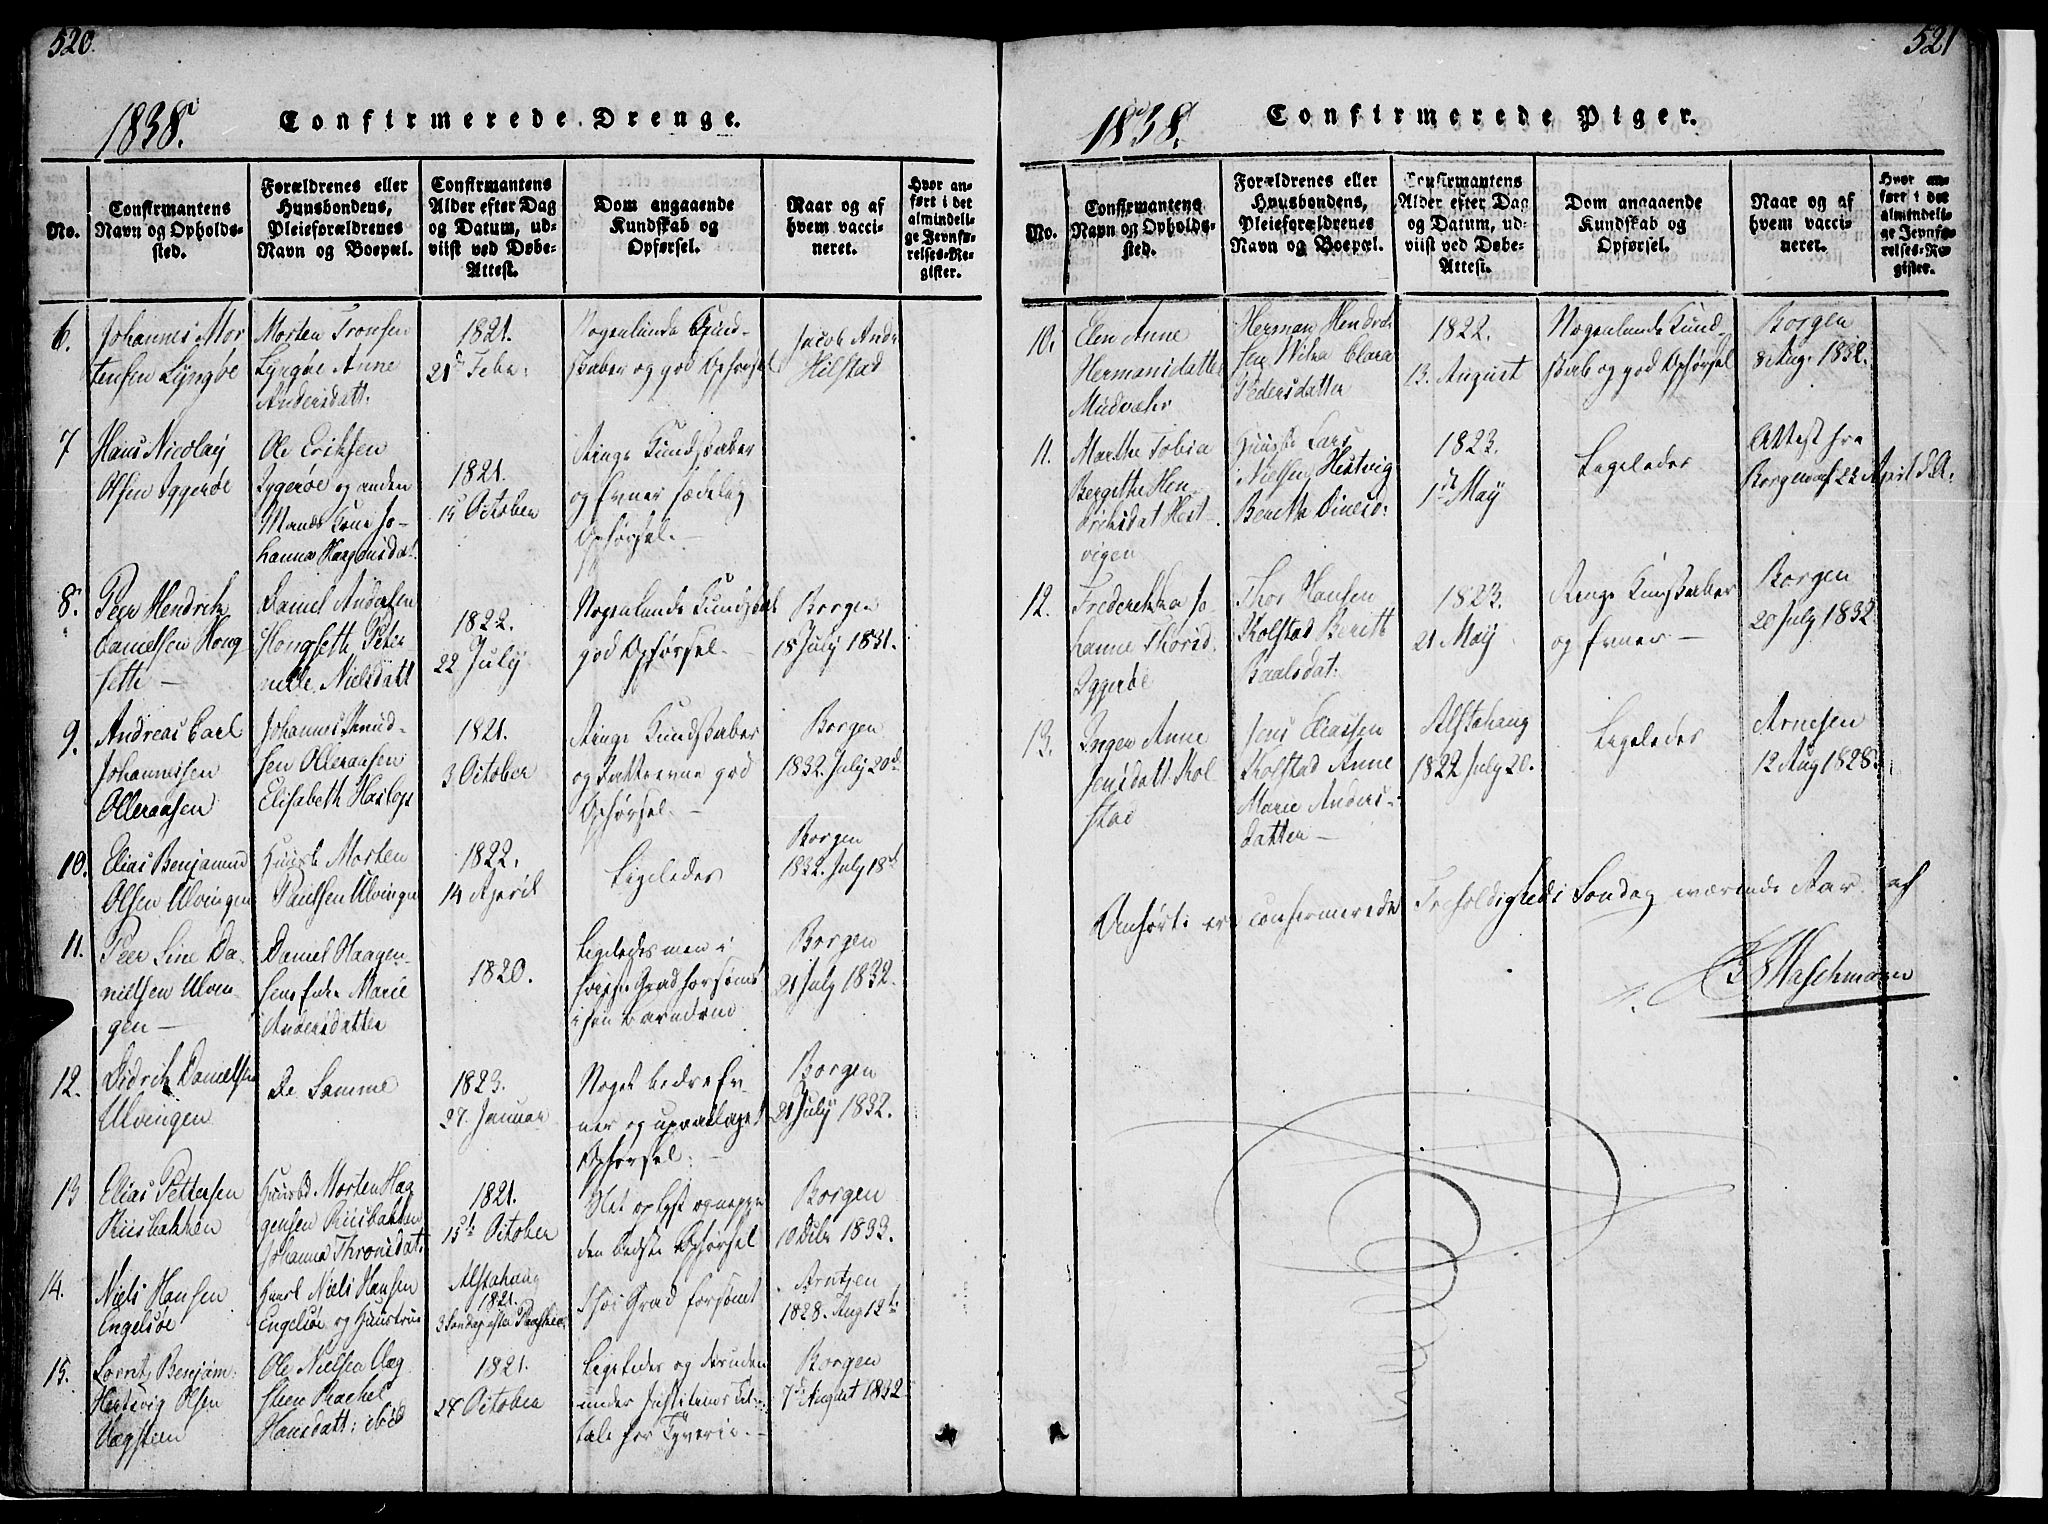 520.
1838.
Confirmerede Drenge.
No.
Confirmantens
Navn og Opholds-
sted.
Forældrenes eller
Huusbondens,
Pleieforældrenes
Navn og Boepæl.
Confirmantens
Alder efter Dag
og Datum, ud-
viist ved Døbe-
Attest.
Dom angaaende
Kundskab og
Opførsel.
Naar og af
hvem vacci-
neret.
Hvor an-
ført i det
almindeli-
ge Jevnfø-
relses-Re-
gister.
6.
Johannes Mor
tensen Lyngøe
Morten Tronsen
Lyngøe Anne
Andersdatt:
1821.
21de Febr:
Nogenlunde Kund-
skaber og god Opførsel
Jacob Andr
Hilstad
7
Hans Nicolay
Olsen Iggerøe
Ole Eriksen
Iggerøe og anden
Mands Kone Jo-
hanna Haagensdat.
1821.
15 October
Ringe Kundskaber
og Evner sædelig
Opførsel.
8.
Peer Hendrik
Danielsen Hong
sette
Daniel Andersen
Hongsette Peter
nelle Nielsdatt
1822.
22 July
Nogenlunde Kundskab
god Opførsel.
Borgen
18 July 1831.
9.
Andreas Carl
Johannessen
Olleraasen
Johannes Knud-
sen Olleraasen
Elisabeth
1821.
3 October
Ringe Kundskaber
og Fatteevne god
Opførsel.
Borgen
1832. July 20de
10.
Elias Benjamin
Olsen Ulvingen
Huusb. Morten
Paulsen Ulvingen
1822.
14 April
Ligeledes
Borgen
1832. July 18de
11.
Peer Sine Da-
nielsen Ulvin-
gen
Daniel Haagen-
sens Enke Marie
Andersdatter
1820.
Ligeledes men i
Grad forsømt
i sin Barndom
Borgen
21 July 1832.
12.
Didrik Danielsen
Ulvingen
De Samme
1823.
27. Januar
Noget bedre Ev-
ner og upaaklaget
Opførsel.
Borgen
21 July 1832.
13
Elias Pettersen
Riisbakken
Huusbd Morten Haa
gensen Riisbakken
Johanna Thronsdat.
1821.
15de October
Slet oplyst og neppe
den bedste Opførsel
Borgen
10 Dcbr 1833.
14.
Niels Hansen
Engelsøe
Niels Hansen
Engelsøe og Huustrue
Alstahaug
1821.
3 Søndag efter Paaske
I høi Grad forsømt
Arntzen
1828. Aug 12te
15.
Lorntz Benjam:
Hertevig Olsen
Aagsteen
Ole Nielsen Aag
steen Rachel
Hansdatt: ibid
1821.
24 October
Ligeledes og desuden
under Justitiens Til-
tale for Tyverie.
Borgen
7de August 1832
521
1838.
Confirmerede Piger.
No.
Confirmantens
Navn og Opholds-
sted.
Forældrenes eller
Huusbondens,
Pleieforældrenes
Navn og Boepæl.
Confirmantens
Alder efter Dag
og Datum, ud-
viist ved Døbe-
Attest.
Dom angaaende
Kundskab og
Opførsel.
Naar og af
hvem vacci-
neret.
Hvor an-
ført i det
almindeli-
ge Jevnfø-
relses-Re-
gister.
10.
Elen Anne
Hermansdatter
Mudvæhr
Herman Hendrik
sen Wilna Clara
Pedersdatter
1822.
13. August
Nogenlunde Kund-
skab og god Opførsel
Borgen
8 Aug. 1832.
11.
Marthe Tobia
Bergithe Hen
driksdat Hest-
vigen
Huusb. Lars
Nielsen Hestvig
Beretha Dinesd:
1823.
1de May
Ligeledes
Attest fra
Borgen af 22 April d: A:
12.
Frederikka Jo
hanne Thorsd.
Iggerøe
Thor Hansen
Kolstad Beritt
Baalsdat:
1823.
21 May
Ringe Kundskaber
og Evner
Borgen
20 July 1832
13.
Inger Anne
Jensdatt Kol
stad
Jens Eliassen
Kolstad Anne
Marie Anders-
datter
Alstahaug
1822 July 20.
Ligeledes
Arnesen
12 Aug 1828.
Anførte er confirmerede Trefoldigheds Søndag nærværende Aar af
Waschmann